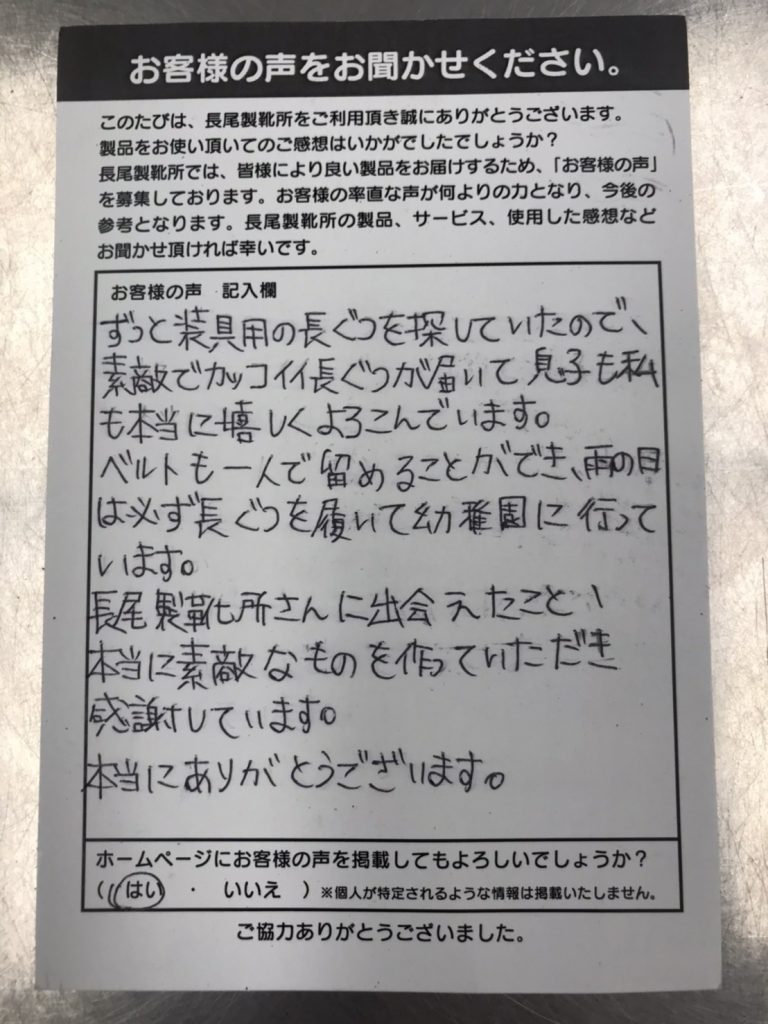 お客様の声をお聞かせください。
このたびは、長尾製靴所をご利用頂き誠にありがとうございます。
製品をお使い頂いてのご感想はいかがでしたでしょうか？
長尾製靴所では、皆様により良い製品をお届けするため、「お客様の声」
を募集しております。お客様の率直な声が何よりの力となり、今後の
参考となります。長尾製靴所の製品、サービス、使用した感想など
お聞かせ頂ければ幸いです。
お客様の声 記入欄
ずっと装具用の長ぐつを探していたので、
素敵でカッコイイ長ぐつが届いて息子も私
も本当に嬉しくよろこんでいます。
ベルトも一人で留めることができ、雨の日
は必ず長ぐつを履いて幼稚園に行って
います。
長尾製靴所さんに出会えたこと、
本当に素敵なものを作っていただき
感謝しています。
本当にありがとうございます。
ホームページにお客様の声を掲載してもよろしいでしょうか？
（ はい ・ いいえ ）※個人が特定されるような情報は掲載いたしません。
ご協力ありがとうございました。